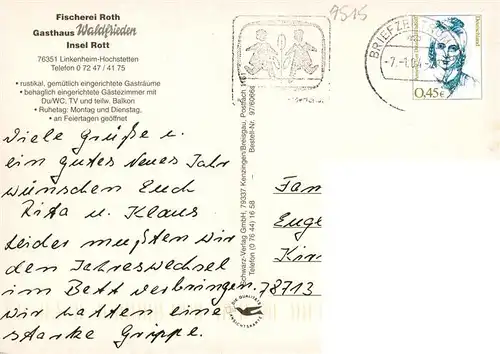 Fischerei Roth
Gasthaus Waldfrieden
Insel Rott
76351 Linkenheim-Hochstetten
Telefon 0 72 47 / 41 75
• rustikal, gemütlich eingerichtete Gasträume
• behaglich eingerichtete Gästezimmer mit
Du/WC, TV und teilw. Balkon
• Ruhetag: Montag und Dienstag,
• an Feiertagen geöffnet
Viele Grüße u.
ein gutes neues Jahr
wünschen Euch
Rita u. Klaus
Leider mußten wir
den Jahreswechsel
im Bett verbringen.
wir hatten eine
starke Grippe.
Schwarz-Verlag GmbH, 79337 Kenzingen/Breisgau, Postfach 1161
Telefon (0 76 44) 16 58 - Bestell-Nr.
9515
BRIEFZENTRUM
Deutschland
0,45€
Fam
Euge
Kir
78713
DIE QUALITÄTS
ANSICHTSKARTE